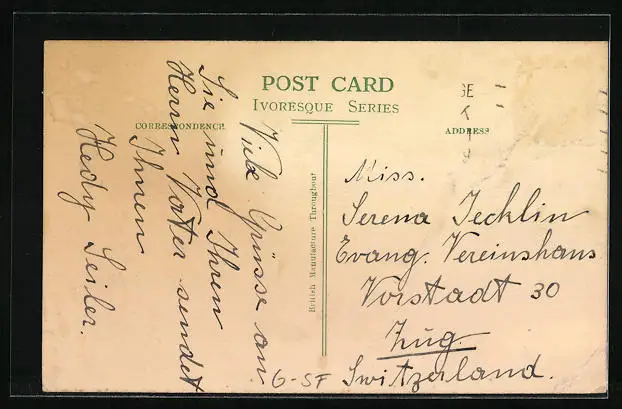 POST CARD
IVORESQUE SERIES
CORRESPONDENCE
ADDRESS
British Manufacture Throughout
Viele Grüsse an
Sie und Ihren
Herrn Vater sendet
Ihnen
Hedy Seiler.
Miss.
Serena Jecklin
Evang. Vereinshaus
Vorstadt 30
Zug.
Switzerland.
6-SF